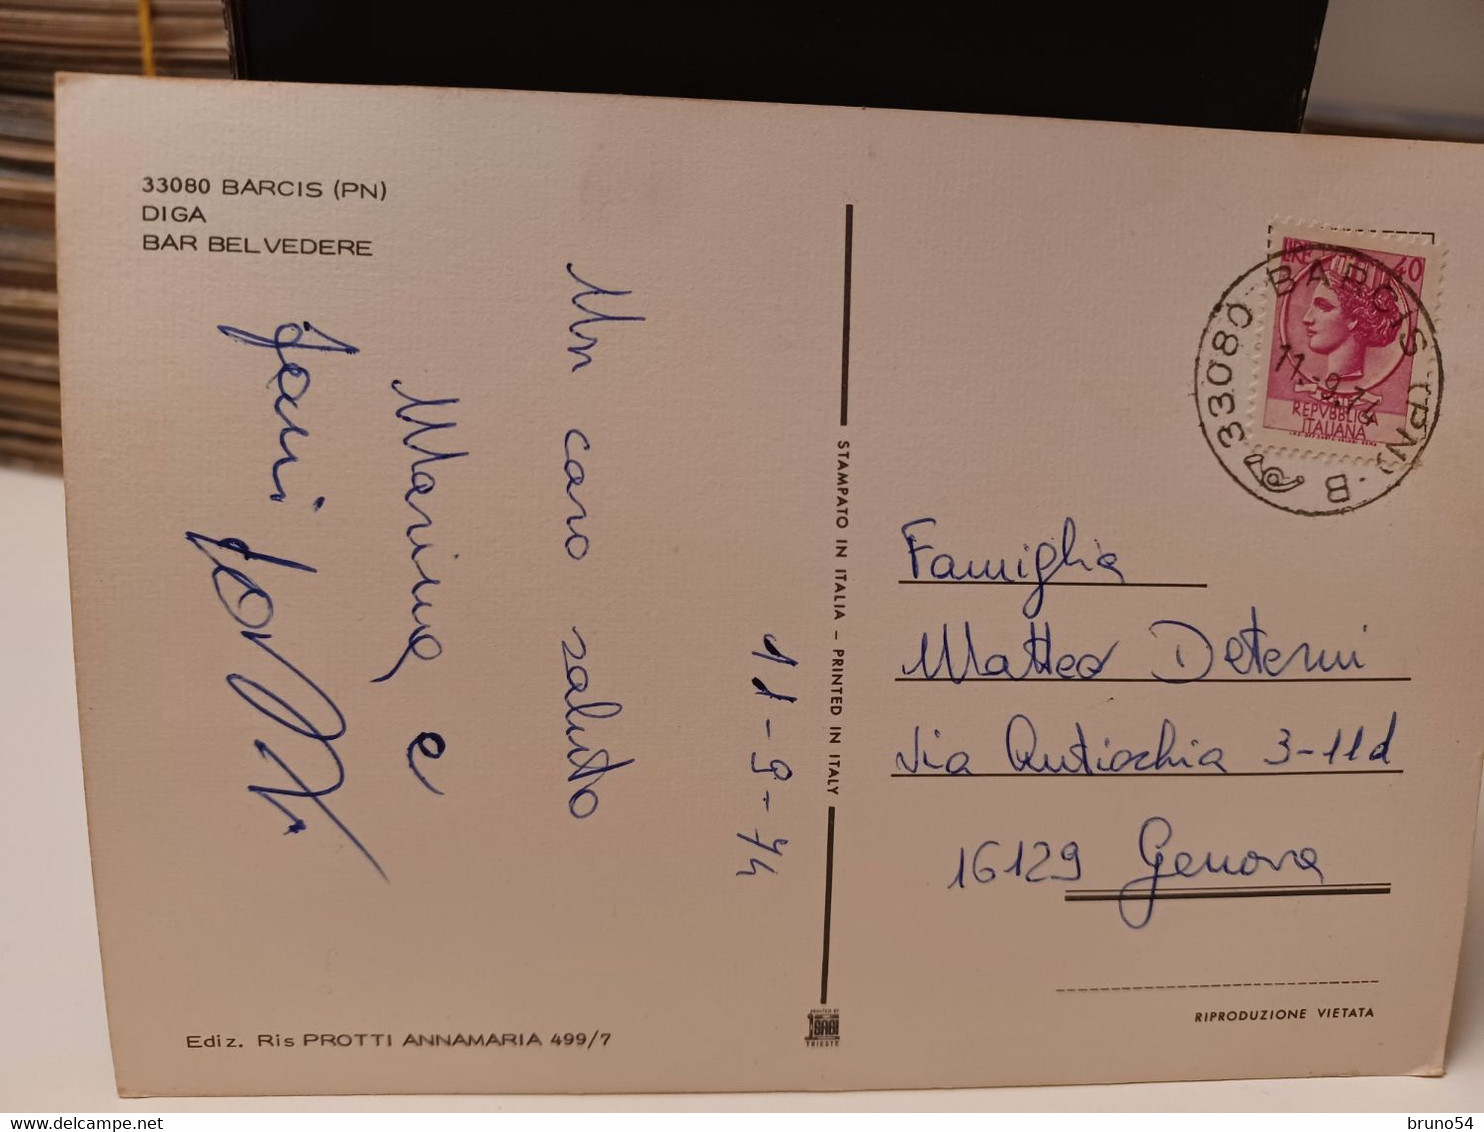 33080 BARCIS (PN)
DIGA
BAR BELVEDERE
11-9-74
Un caro saluto
Marina e
STAMPATO IN ITALIA – PRINTED IN ITALY
LIRE 40
REPVBBLICA
ITALIANA
33080 BARCIS (PN) · B
11.-9.74
Famiglia
Matteo Deterni
Via Antiochia 3-11d
16129 Genova
RIPRODUZIONE VIETATA
Ediz. Ris PROTTI ANNAMARIA 499/7
TRIESTE
bruno54